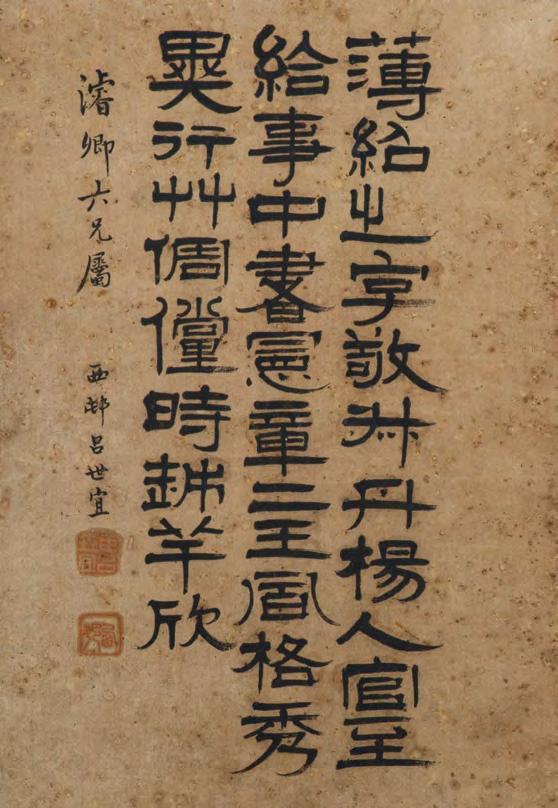 薄紹之字敬叔丹楊人官至
給事中書憲章二王風格秀
異行艸倜儻時越羊欣
濬卿六兄屬
西邨呂世宜